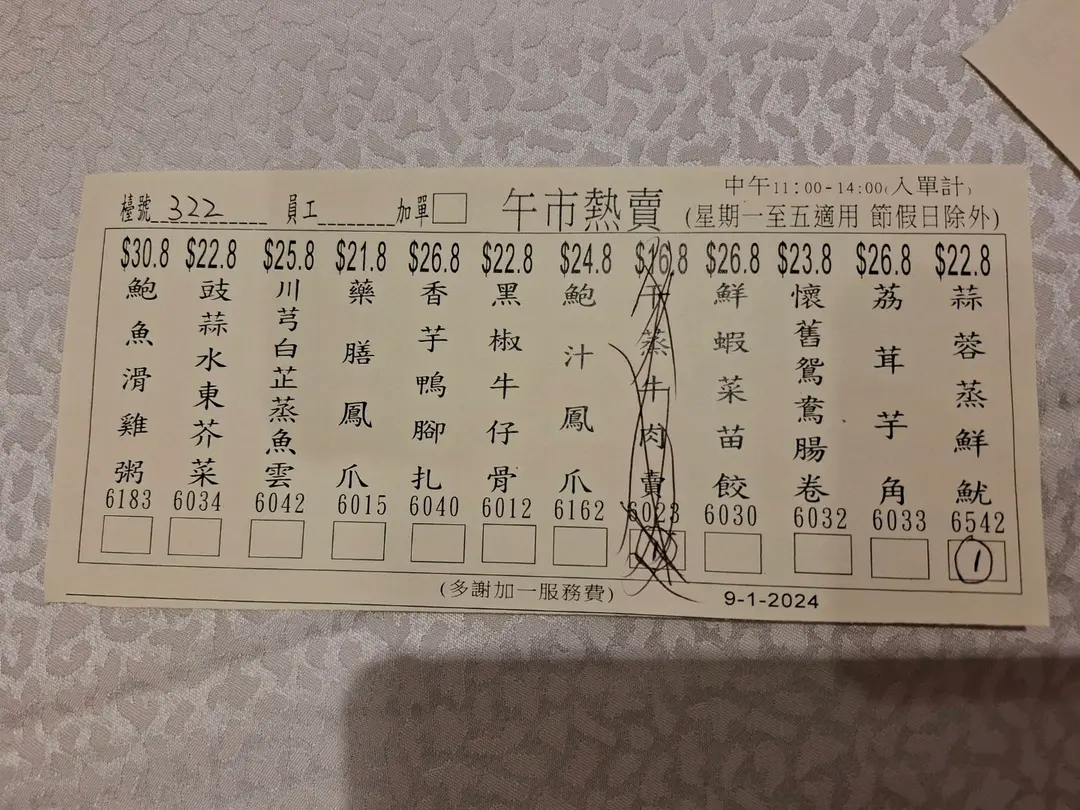 檯號 322 員工 加單 午市熱賣 中午11:00-14:00(入單計)
(星期一至五適用 節假日除外)
$30.8 $22.8 $25.8 $21.8 $26.8 $22.8 $24.8 $16.8 $26.8 $23.8 $26.8 $22.8
鮑魚滑雞粥
豉蒜水東芥菜
川芎白芷蒸魚雲
藥膳鳳爪
香芋鴨腳扎
黑椒牛仔骨
鮑汁鳳爪
干蒸牛肉賣
鮮蝦菜苗餃
懷舊鴛鴦腸卷
荔茸芋角
蒜蓉蒸鮮魷
6183 6034 6042 6015 6040 6012 6162 6023 6030 6032 6033 6542
1 1
(多謝加一服務費) 9-1-2024